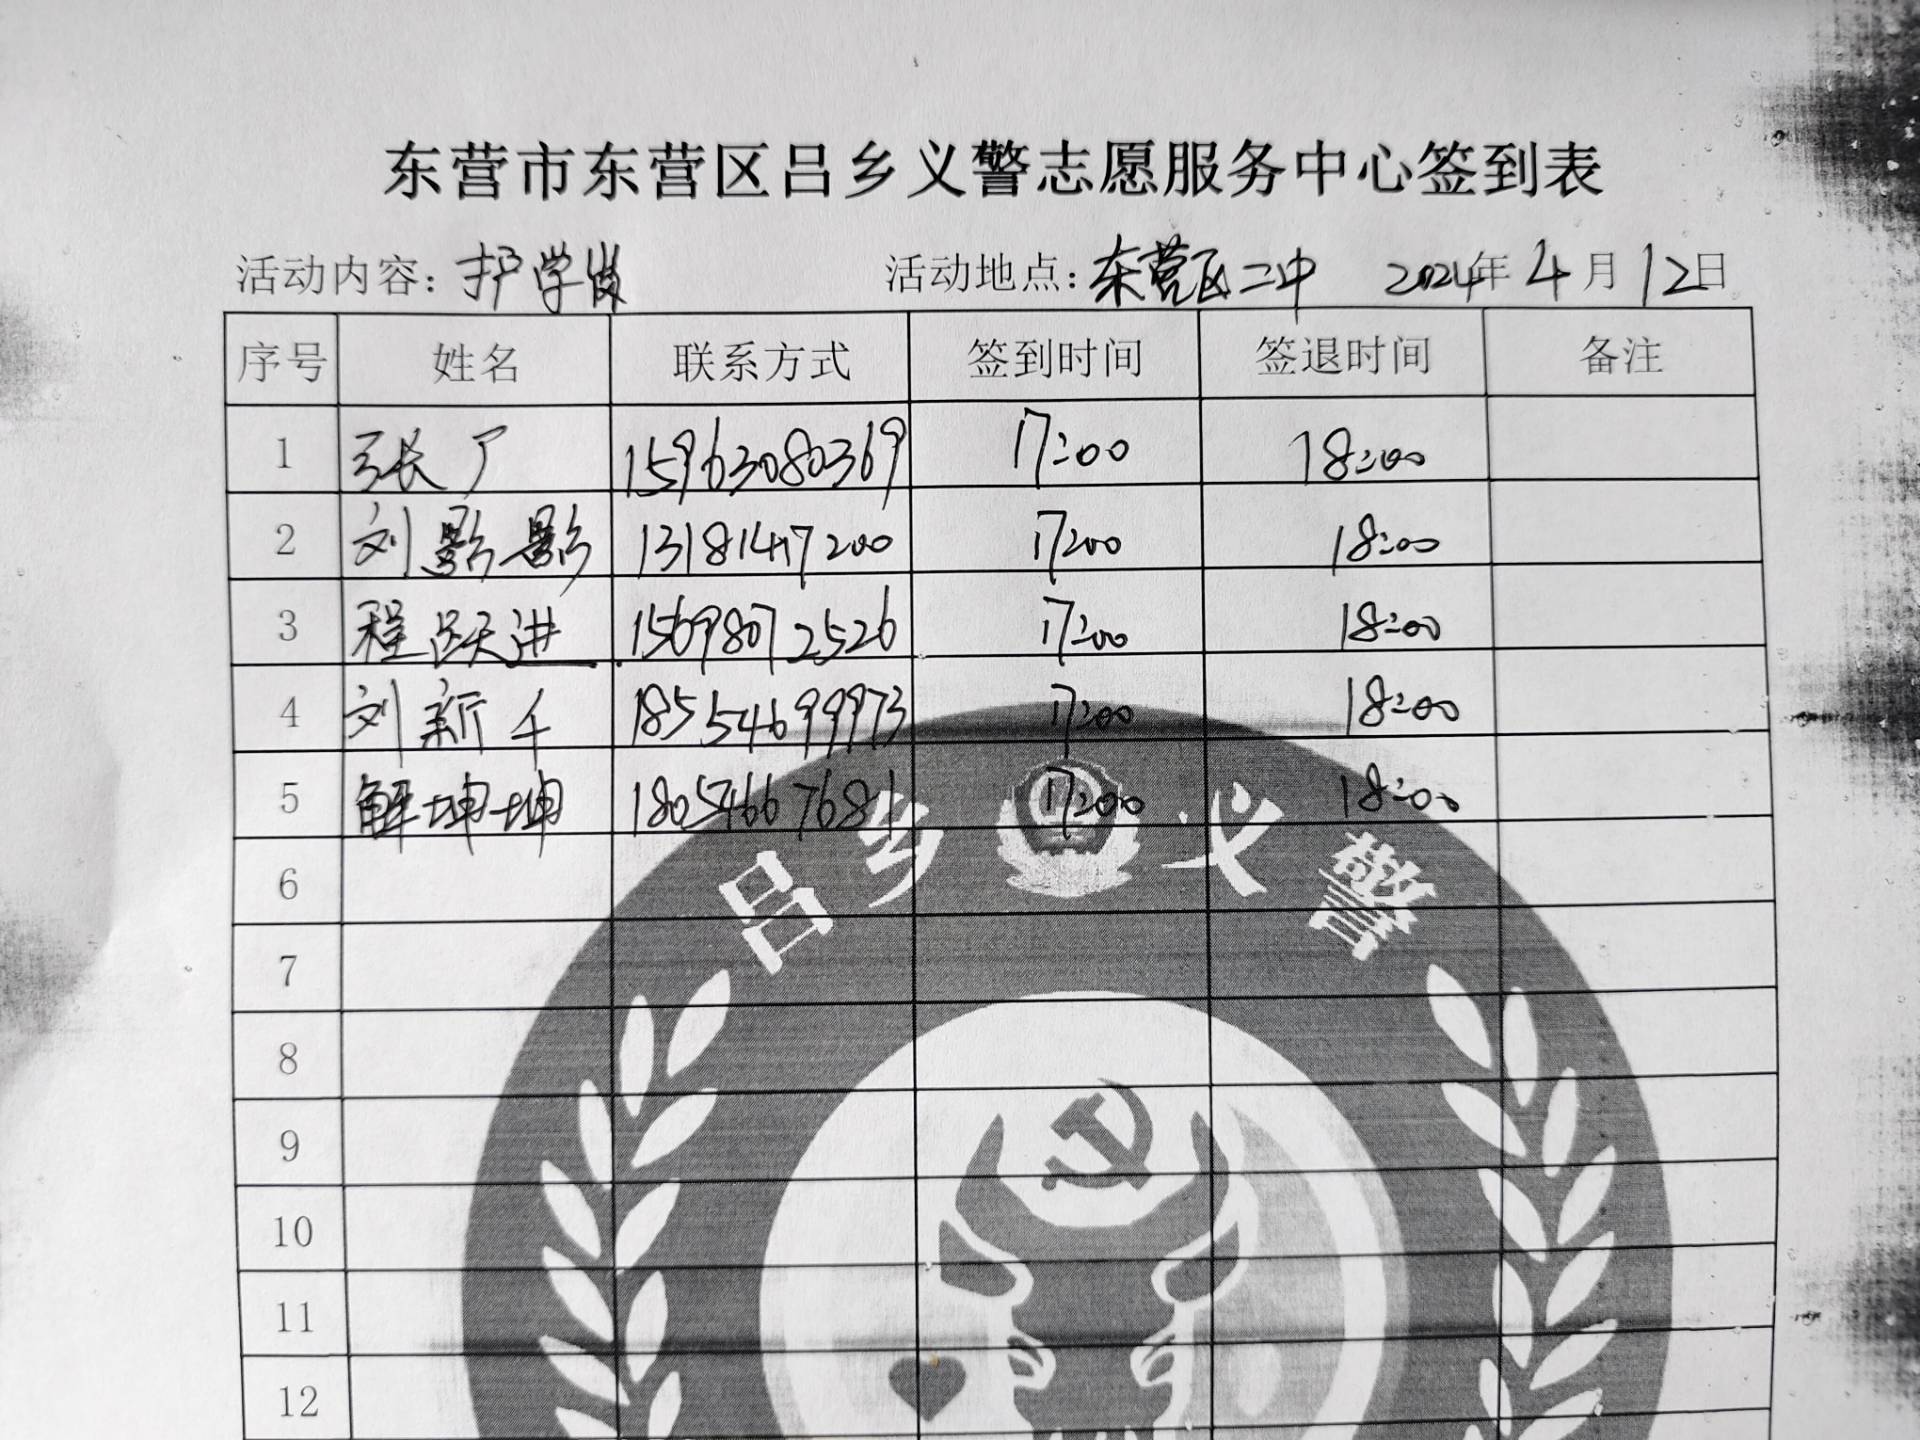 东营市东营区吕乡义警志愿服务中心签到表
活动内容：护学岗 活动地点：东营区二中 2024年4月12日
序号 姓名 联系方式 签到时间 签退时间 备注
1 张广 15963080369 17:00 18:00
2 刘影影 13181417200 17:00 18:00
3 程跃进 15698072526 17:00 18:00
4 刘新千 18554699973 17:00 18:00
5 解坤坤 18054667681 17:00 18:00
6
7
8
9
10
11
12
吕乡义警